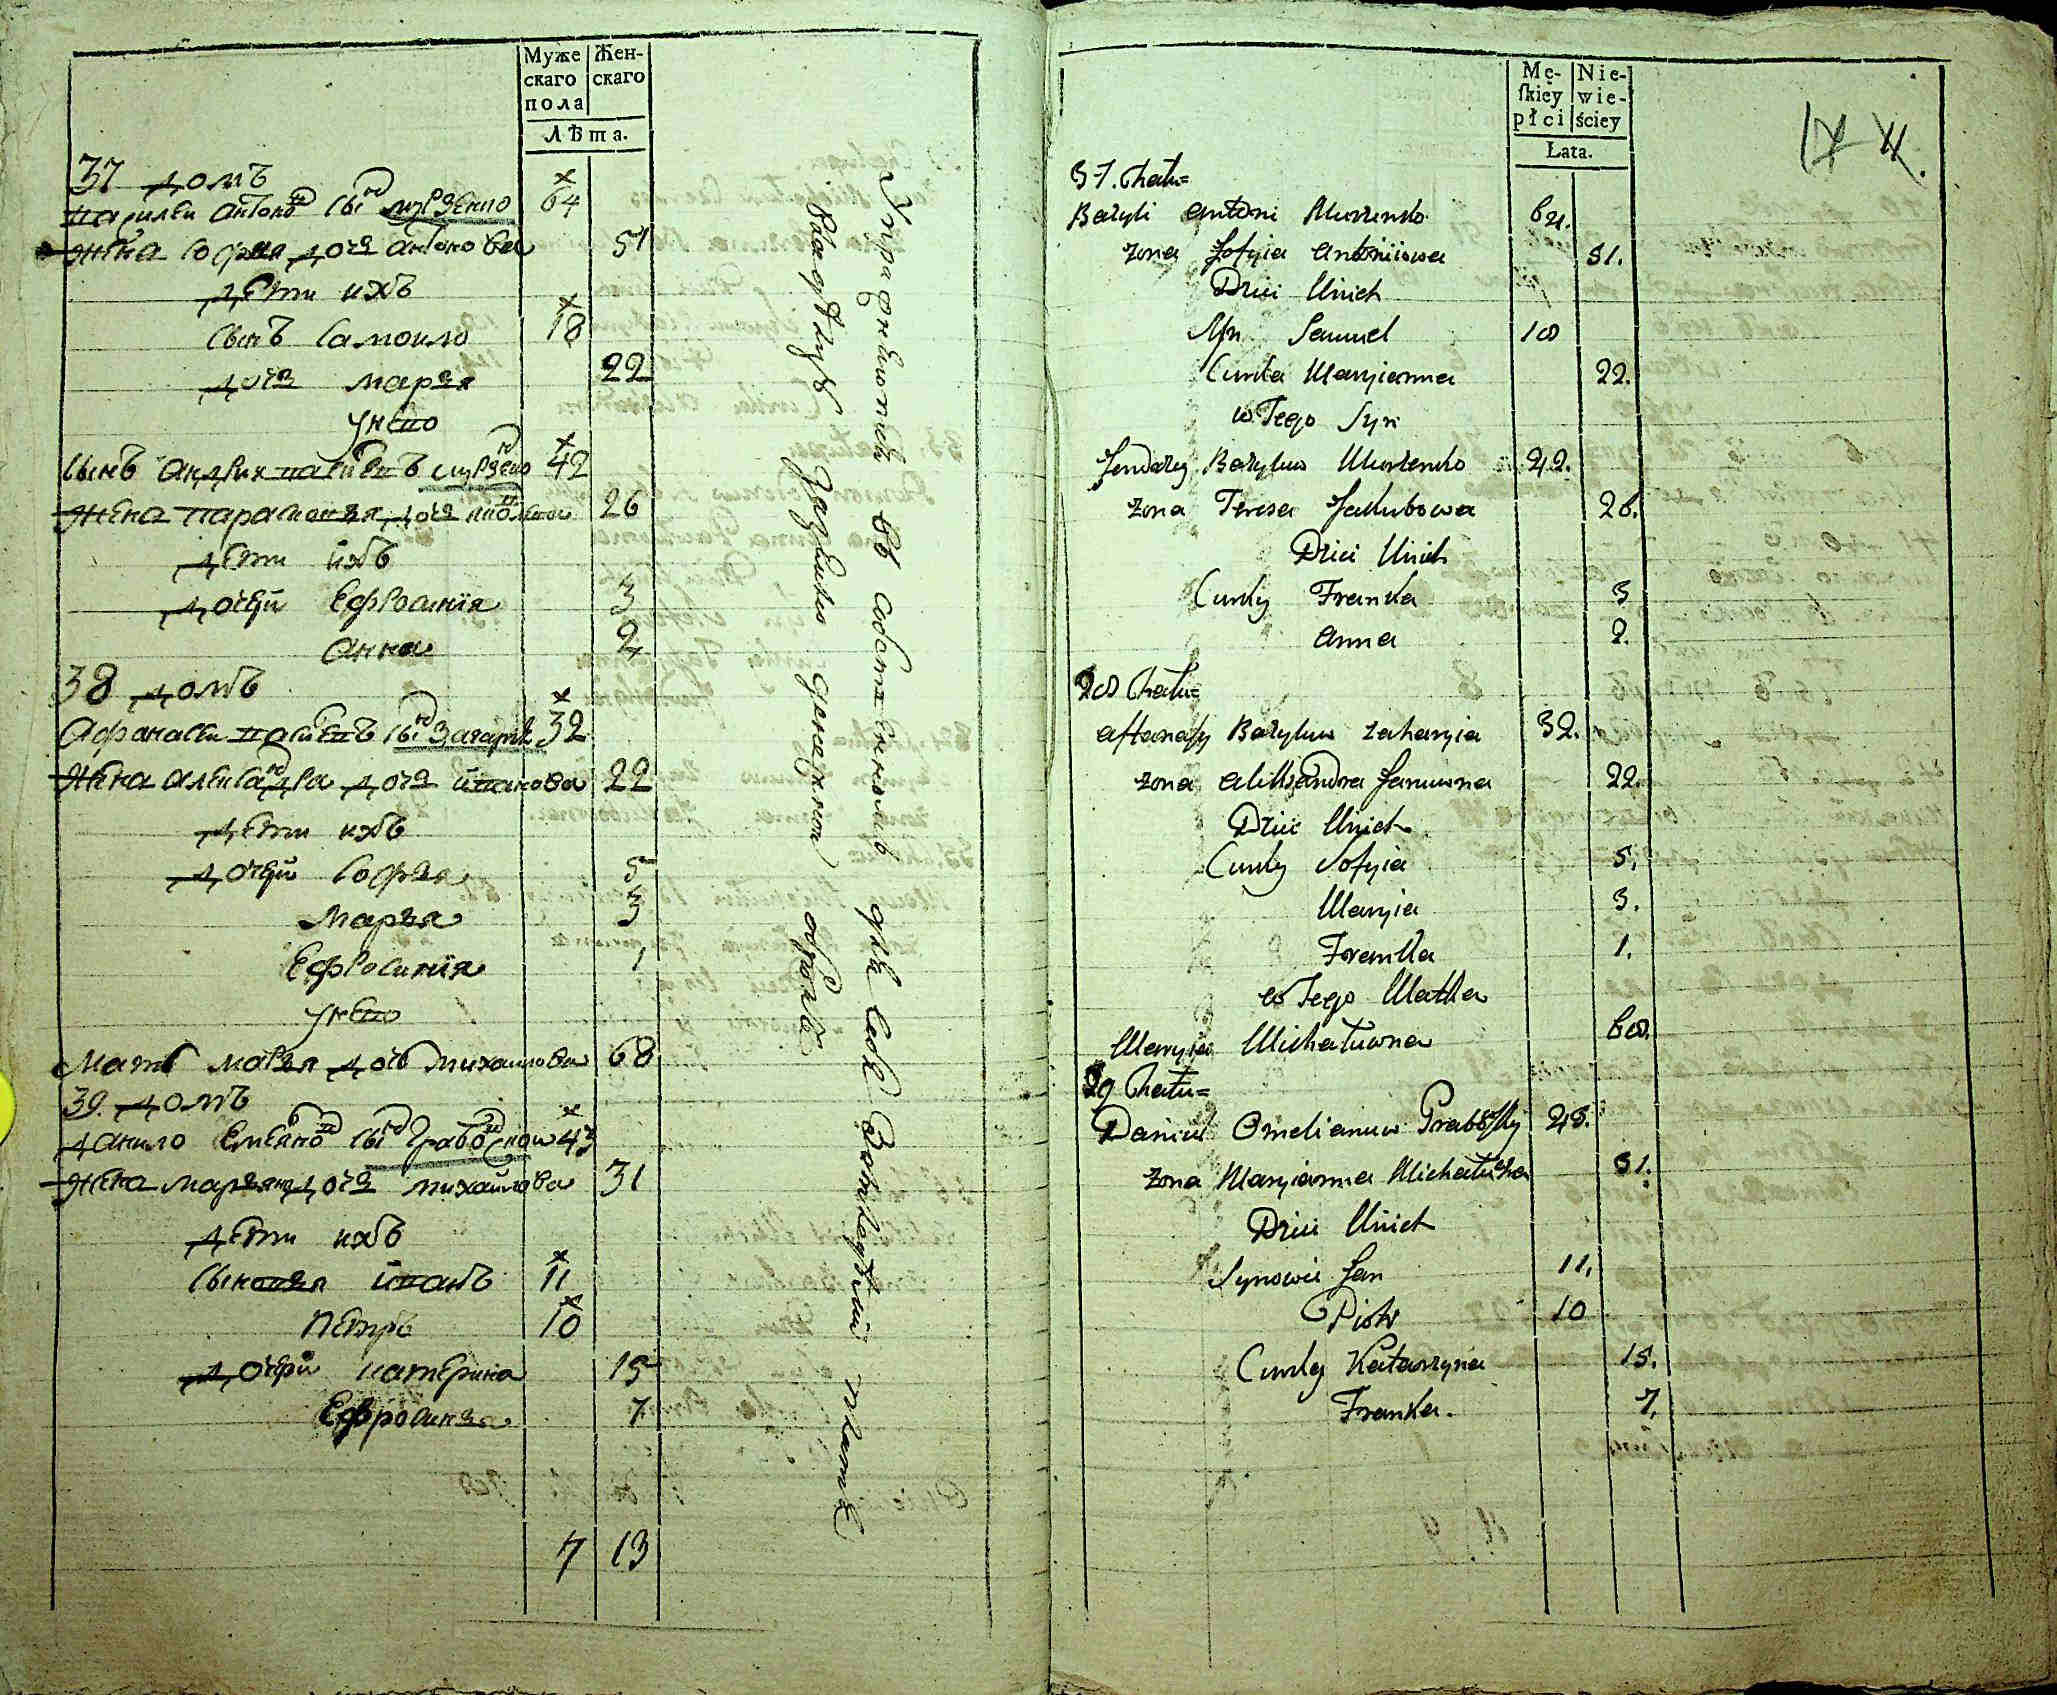 Муже
скаго
пола
Жен-
скаго
Лѣта.
37 домъ
Василеи антоновъ сынъ мурзенко 64
жена софья дочь антонова 51
дѣти ихъ
сынъ самоило 18
дочь марья 22
унево
сынъ андрей васильевъ мурзенко 42
жена парасковья дочь 26
дѣти ихъ
дочери Ефросинія 3
анна 2
38 домъ
Афанасеи васильевъ сынъ 32
жена александра дочь иванова 22
дѣти ихъ
дочери софья 5
марья 3
Ефросинія 1
унево
мать марья дочь михаилова 68
39. домъ
данило Емельяновъ сынъ грабовскои 43
жена марьяна дочь михаилова 31
дѣти ихъ
сыновья иванъ 11
петръ 10
дочери катерина 15
Ефросинья 7
7 13
упражняются въ собственномъ для себя хлѣ
владѣльцу
Mę-
ſkiey
płci
Nie-
wie-
ściey
Lata.
37. Chatu=
Bazyli Antoni Murzenko 64.
Zona Zofyia Antoniiowa 51.
Dzici Unich
Syn Samuel 18
Curka Maryianna 22.
u Tego Syn
Jendrzy Bazyluw Murzenko 42.
Zona Teresa Jakubowa 26.
Dzici Unich
Curky Franka 3
Anna 2.
38 Chatu=
Aftanasy Bazyluw Zaharyia 32.
Zona Aliksandra Januwna 22.
Dzici Unich
Curky Sofyia 5.
Maryia 3.
Franka 1.
u Tego Matka
Maryia Michałuwna 68.
39 Chatu=
Daniel Omelianuw Grabosky 43.
Zona Maryianna Michałuwna 31.
Dzici Unich
Synowie Jan 11.
Piotr 10
Curky Katarzyna 15.
Franka. 7.